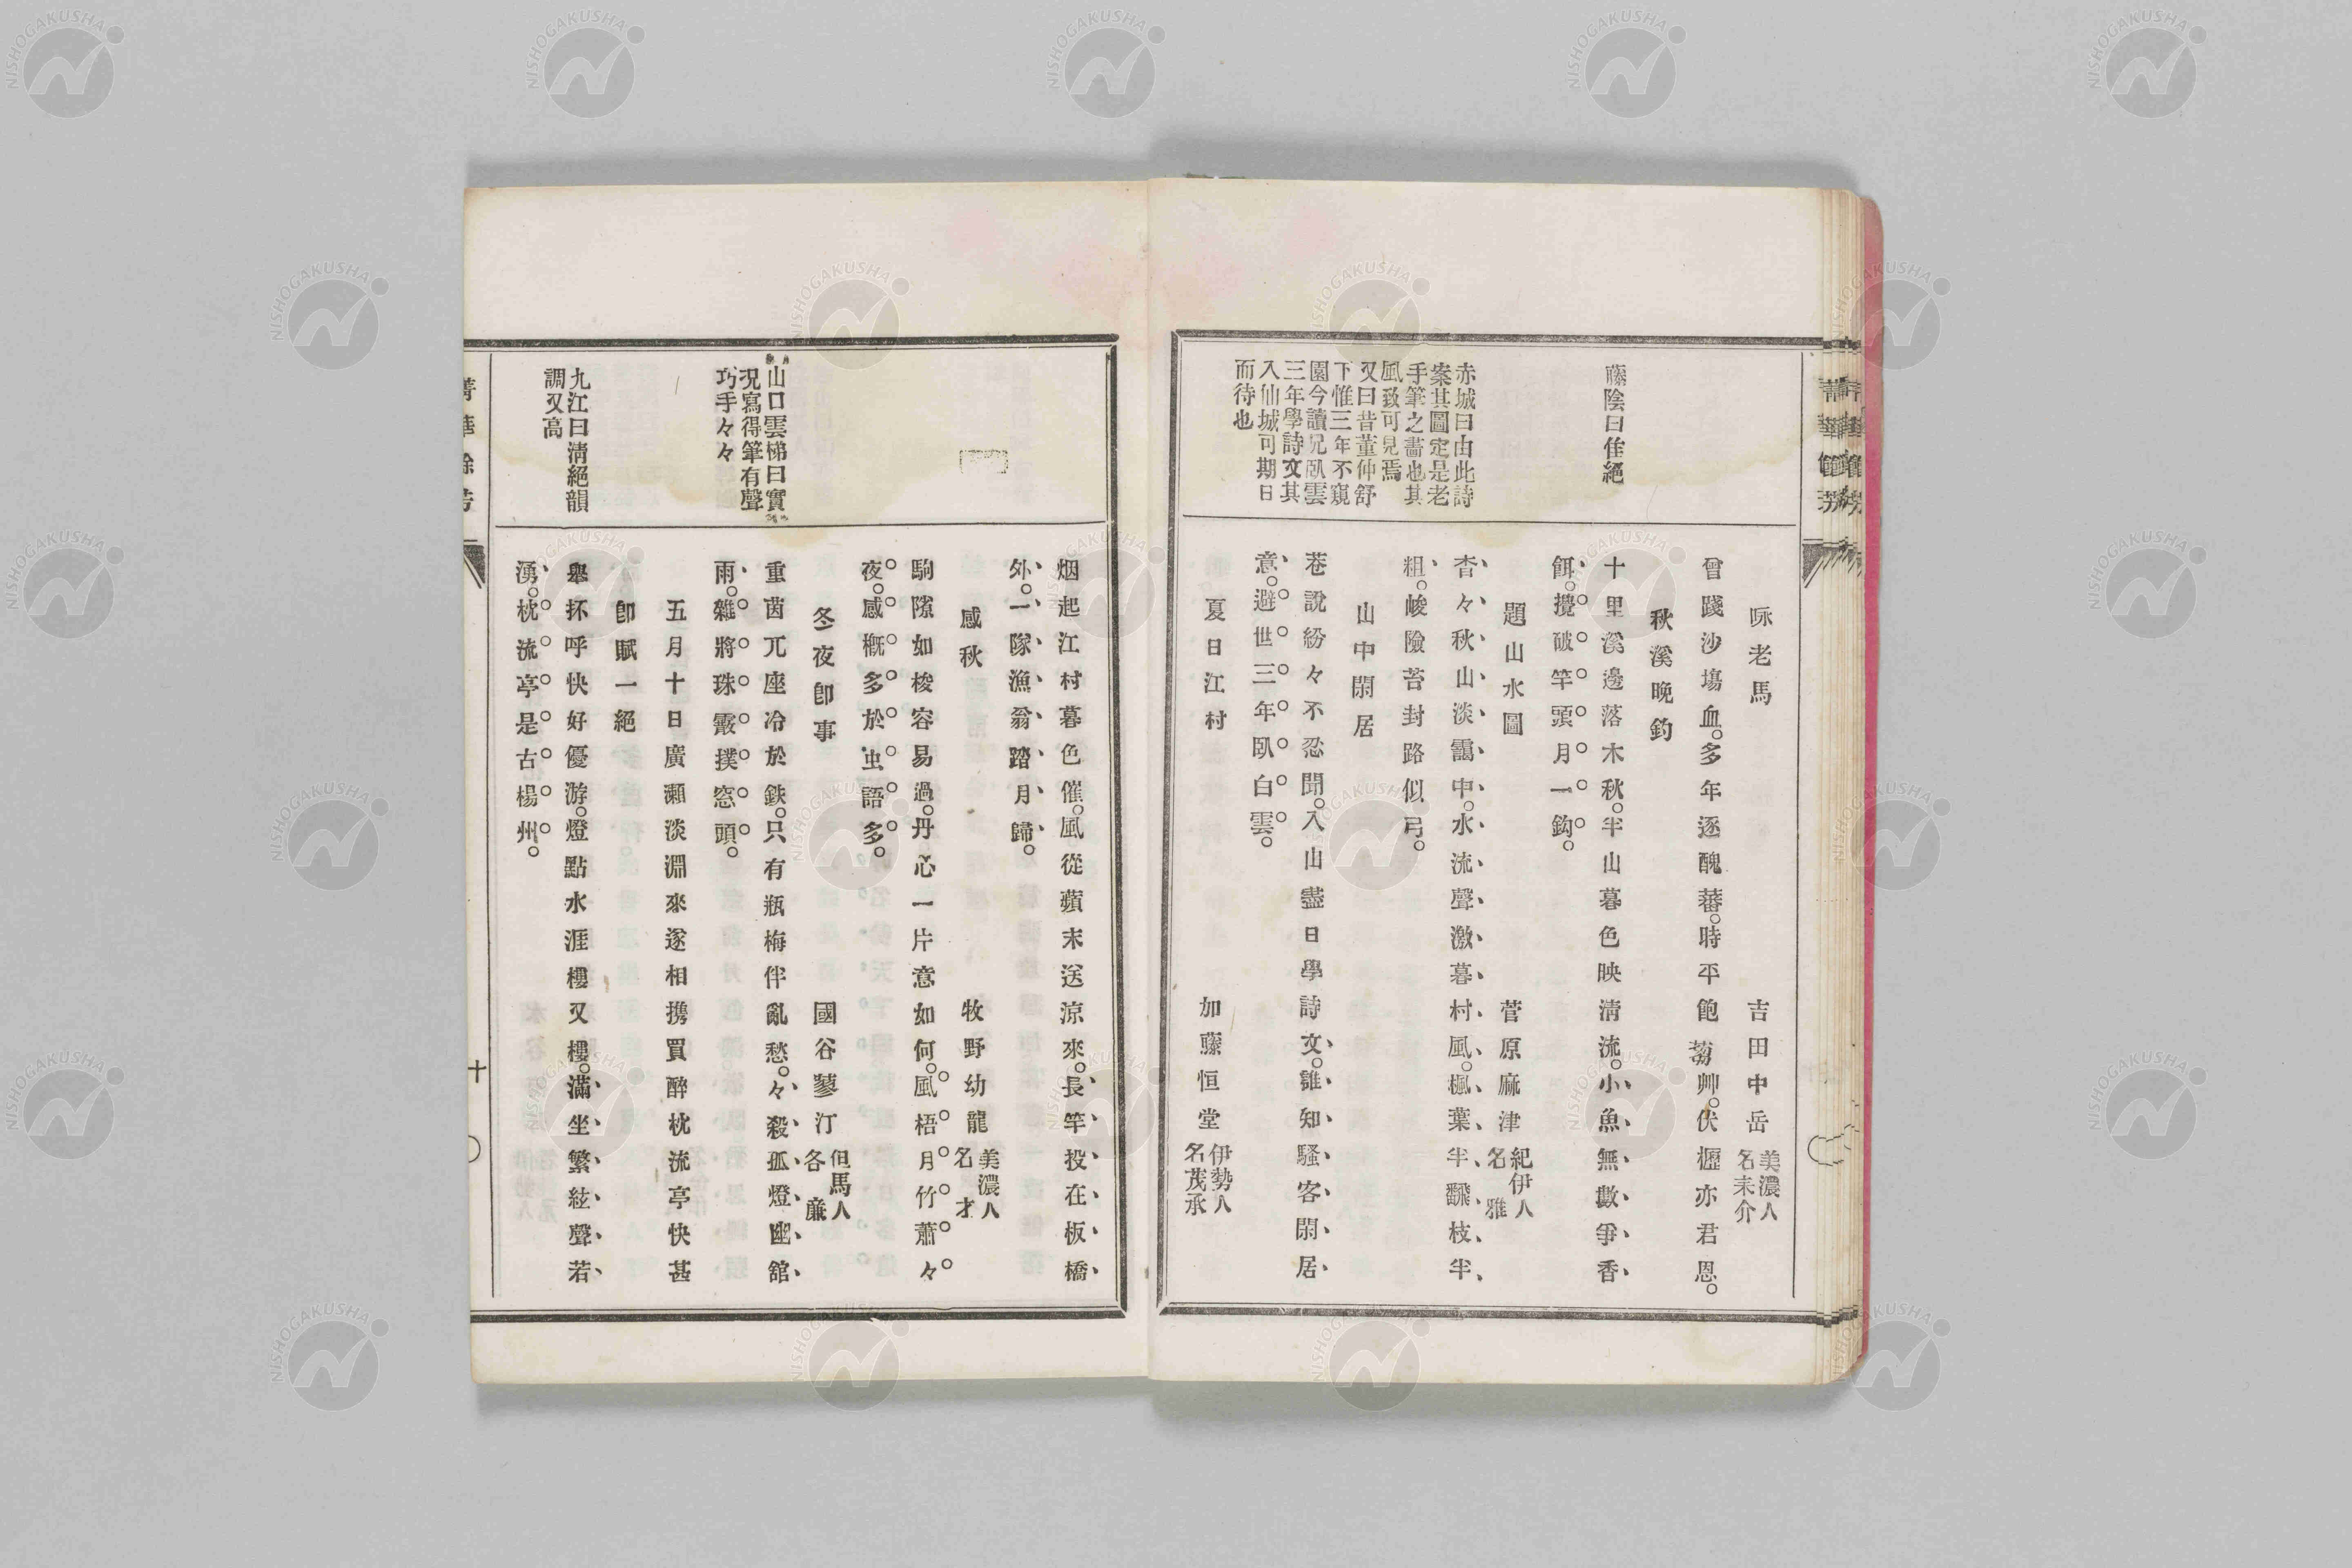 藤陰曰佳絕
赤城曰由此詩
案其圖定是老
手筆之畵也其
風致可見焉
又曰昔董仲舒
下惟三年不窺
園今讀兄臥雲
三年學詩文其
入仙城可期日
而待也
咏老馬　吉田中岳　美濃人
名未介
曾踐沙塲血。多年逐醜蕃。時平飽蒭艸。伏櫪亦君恩。
秋溪晚釣
十里溪邊落木秋。半山暮色映淸流。小魚無數爭香
餌。攪破竿頭月一鈎。
題山水圖　菅原麻津　紀伊人
名雅
杳々秋山淡靄中。水流聲激暮村風。楓葉半飜枝半
粗。峻險苔封路似弓。
山中閑居
巷說紛々不忍聞。入山盡日學詩文。誰知騷客閑居
意。避世三年臥白雲。
夏日江村　加藤恒堂　伊勢人
名茂承
山口雲梯曰實
况寫得筆有聲
巧手々々
九江曰淸絕韻
調又高
烟起江村暮色催。風從蘋末送涼來。長竿投在板橋
外。一隊漁翁踏月歸。
感秋　牧野幼龍　美濃人
名才
駒隙如梭容易過。丹心一片意如何。風梧月竹蕭々
夜。感槪多於虫語多。
冬夜卽事　國谷蓼汀　但馬人
各廉
重茵兀座冷於鉄。只有瓶梅伴亂愁。々殺孤燈幽舘
雨。雜將珠霰撲窓頭。
五月十日廣瀨淡淵來遂相携買醉枕流亭快甚
卽賦一絕
舉抔呼快好優游。燈點水涯樓又樓。滿坐繁絃聲若
湧。枕流亭是古楊州。
菁華餘芳
十
NISHOGAKUSHA